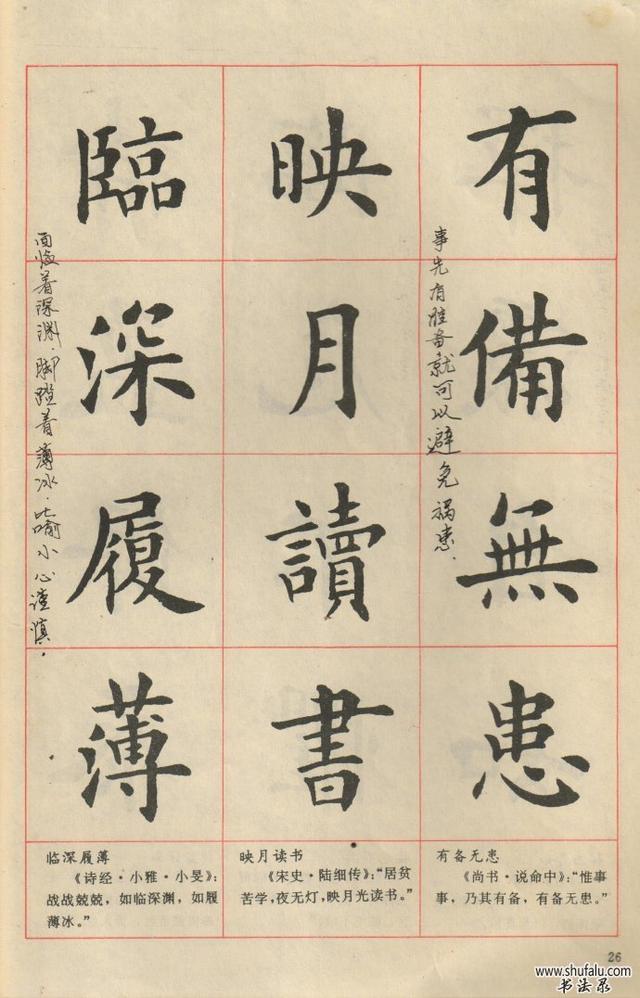 有備無患
事先有准备就可以避免祸患.
映月讀書
臨深履薄
面临着深渊.脚踏着薄冰.比喻小心谨慎.
有备无患
《尚书·说命中》:“惟事
事，乃其有备，有备无患。”
映月读书
《宋史·陆细传》:“居贫
苦学，夜无灯，映月光读书。”
临深履薄
《诗经·小雅·小旻》:
战战兢兢，如临深渊，如履
薄冰。”
26
www.shufalu.com
书法录